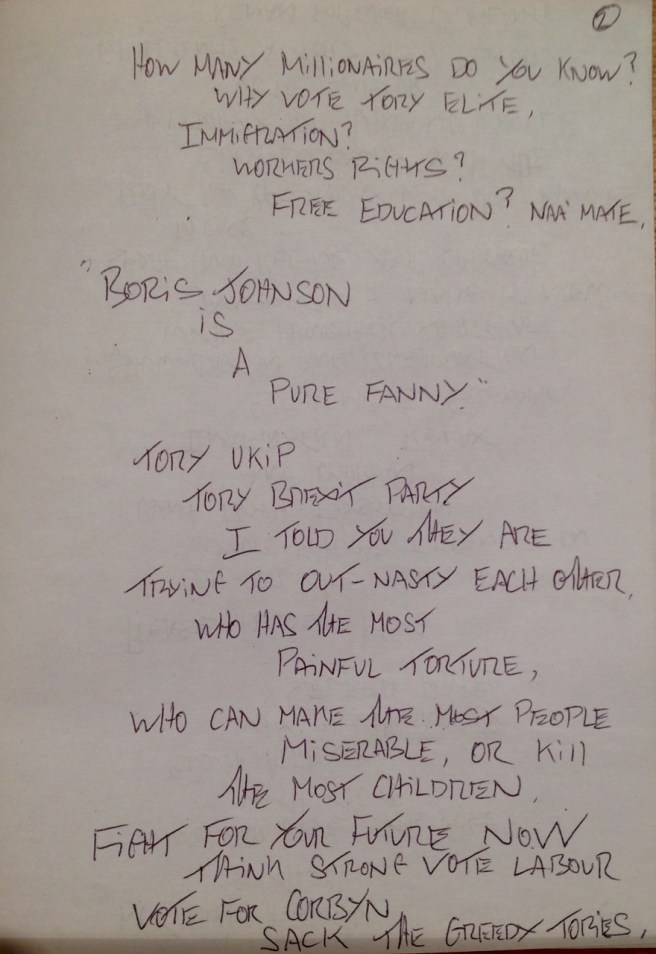 2
HOW MANY MILLIONAIRES DO YOU KNOW?
WHY VOTE TORY ELITE,
IMMIGRATION?
WORKERS RIGHTS?
FREE EDUCATION? NAA' MATE,
"BORIS JOHNSON
IS
A
PURE FANNY."
TORY UKIP
TORY BREXIT PARTY
I TOLD YOU THEY ARE
TRYING TO OUT-NASTY EACH OTHER,
WHO HAS THE MOST
PAINFUL TORTURE,
WHO CAN MAKE THE MOST PEOPLE
MISERABLE, OR KILL
THE MOST CHILDREN,
FIGHT FOR YOUR FUTURE NOW
THINK STRONG VOTE LABOUR
VOTE FOR CORBYN
SACK THE GREEDY TORIES,